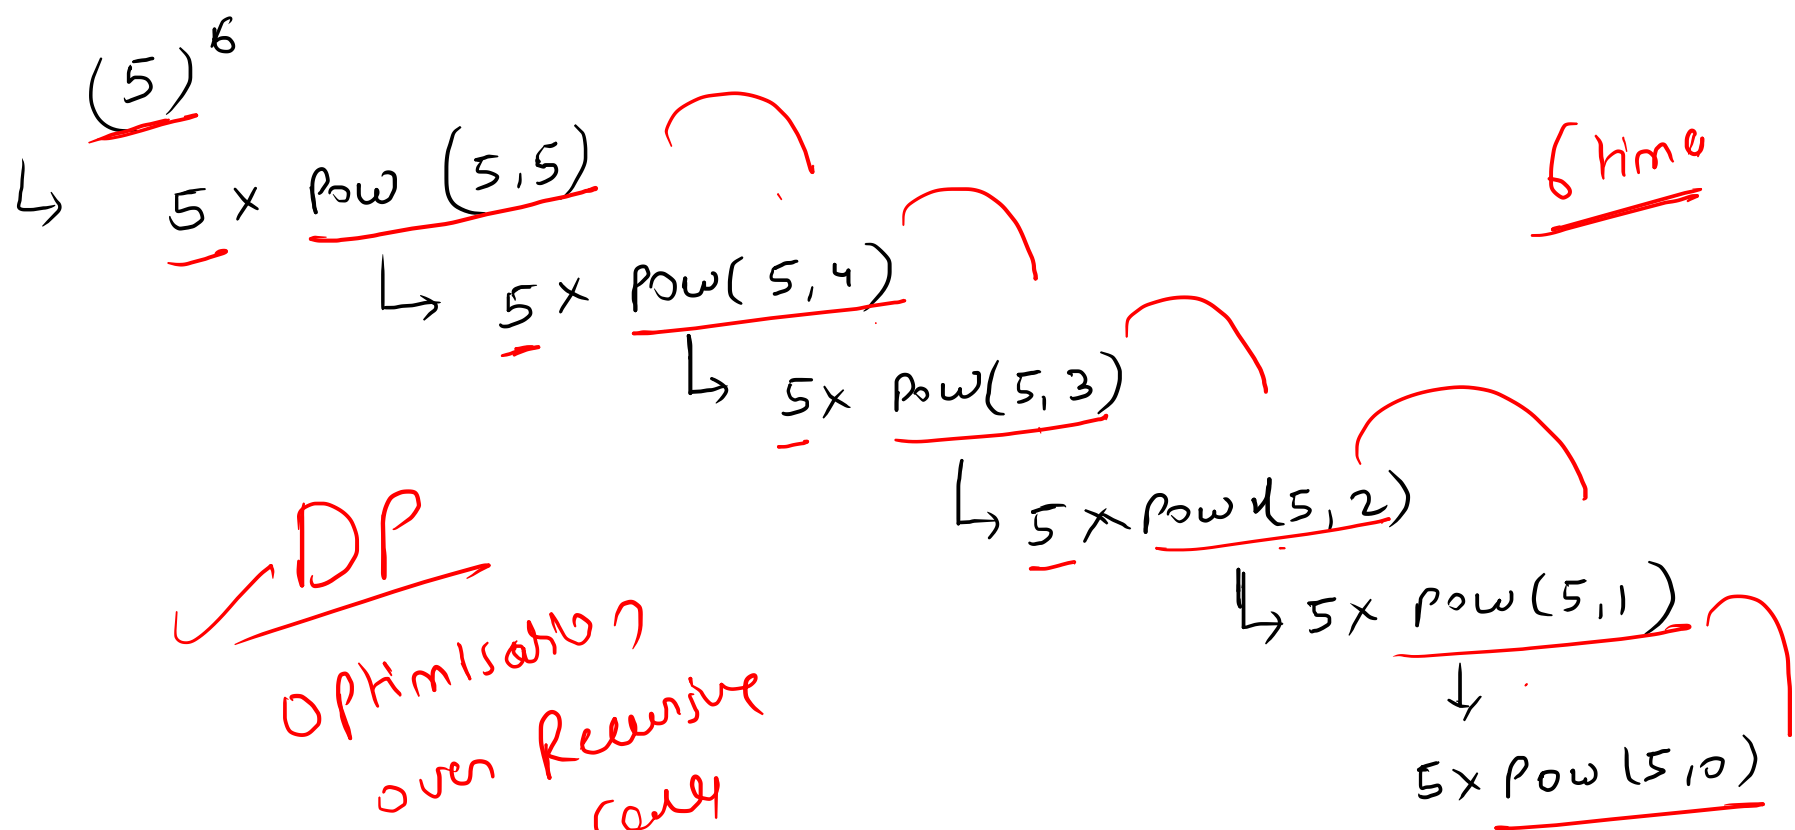 (5)⁶
5 × pow (5,5)
6 time
5 × pow( 5,4)
5 × pow(5,3)
5 × pow (5,2)
5 × pow(5,1)
5 × pow (5,0)
DP
optimisation
over Recursive